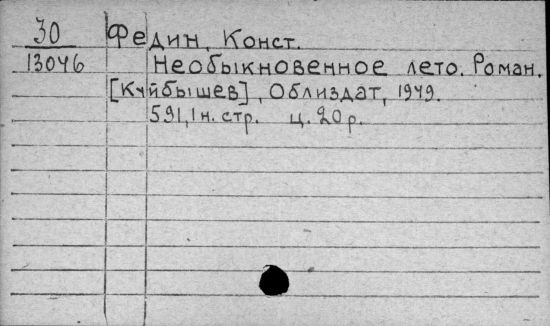 30 Федин, Конст.
13046 Необыкновенное лето. Роман.
[Куйбышев], Облиздат, 1949.
591,1 н. стр. ц. 20 р.